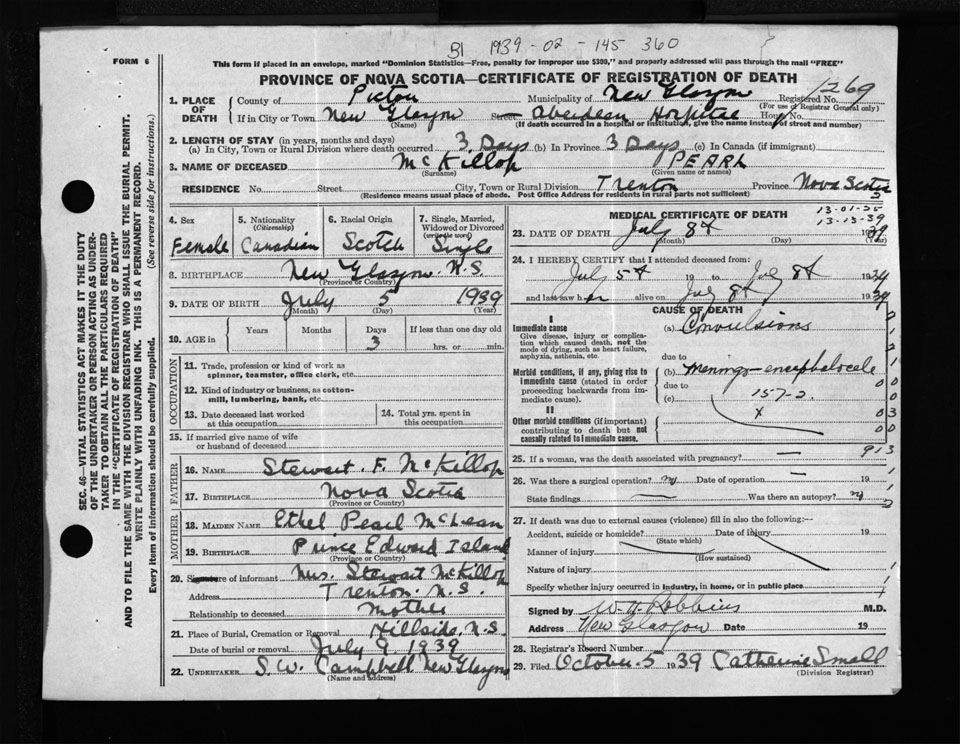 BI 1939-02-145360
FORM 6
This form if placed in an envelope, marked "Dominion Statistics—Free, penalty for improper use $300," and properly addressed will pass through the mail "FREE"
PROVINCE OF NOVA SCOTIA—CERTIFICATE OF REGISTRATION OF DEATH
1. PLACE OF DEATH
County of Pictou Municipality of New Glasgow Registered No. 1269
(For use of Registrar General only)
If in City or Town New Glasgow Street Aberdeen Hospital No.
(Name) (If death occurred in a hospital or institution, give the name instead of street and number)
2. LENGTH OF STAY (in years, months and days)
(a) In City, Town or Rural Division where death occurred 3 Days (b) In Province 3 Days (c) In Canada (if immigrant)
3. NAME OF DECEASED McKillop PEARL
(Surname) (Given name or names)
RESIDENCE No. Street City, Town or Rural Division Trenton Province Nova Scotia
(Residence means usual place of abode. Post Office Address for residents in rural parts not sufficient)
4. Sex Female
5. Nationality (Citizenship) Canadian
6. Racial Origin Scotch
7. Single, Married, Widowed or Divorced (write the word) Single
8. BIRTHPLACE New Glasgow. N.S.
(Province or Country)
9. DATE OF BIRTH July 5 1939
(Month) (Day) (Year)
10. AGE in Years Months Days 3 If less than one day old hrs. or min.
OCCUPATION
11. Trade, profession or kind of work as spinner, teamster, office clerk, etc.
12. Kind of industry or business, as cotton-mill, lumbering, bank, etc.
13. Date deceased last worked at this occupation
14. Total yrs. spent in this occupation
15. If married give name of wife or husband of deceased
FATHER
16. NAME Stewart. F. McKillop
17. BIRTHPLACE Nova Scotia
(Province or Country)
MOTHER
18. MAIDEN NAME Ethel Pearl McLean
19. BIRTHPLACE Prince Edward Island
(Province or Country)
20. Signature of informant Mrs. Stewart McKillop
Address Trenton. N.S.
Relationship to deceased Mother
21. Place of Burial, Cremation or Removal Hillside. N.S.
Date of burial or removal July 9 1939
22. UNDERTAKER S. W. Campbell New Glasgow
(Name and address)
MEDICAL CERTIFICATE OF DEATH
13-01-25
13-13-39
23. DATE OF DEATH July 8th 1939
(Month) (Day) (Year)
24. I HEREBY CERTIFY that I attended deceased from:
July 5th 19 to July 8th 1939
and last saw her alive on July 8th 1939
CAUSE OF DEATH
I
Immediate cause
Give disease, injury or complication which caused death, not the mode of dying, such as heart failure, asphyxia, asthenia, etc.
(a) Convulsions
due to
Morbid conditions, if any, giving rise to immediate cause (stated in order proceeding backwards from immediate cause).
(b) Meningo-encephalocele
due to
(c) 157-2
x
II
Other morbid conditions (if important) contributing to death but not causally related to immediate cause.
25. If a woman, was the death associated with pregnancy? — 913
26. Was there a surgical operation? no Date of operation — 19
State findings — Was there an autopsy? no
27. If death was due to external causes (violence) fill in also the following:—
Accident, suicide or homicide? Date of injury 19
(State which)
Manner of injury
(How sustained)
Nature of injury
Specify whether injury occurred in industry, in home, or in public place
Signed by W. H. Robbins M.D.
Address New Glasgow Date 19
28. Registrar's Record Number
29. Filed October 5 1939 Catherine Small
(Division Registrar)
SEC. 46—VITAL STATISTICS ACT MAKES IT THE DUTY
OF THE UNDERTAKER OR PERSON ACTING AS UNDER-
TAKER TO OBTAIN ALL THE PARTICULARS REQUIRED
IN THE "CERTIFICATE OF REGISTRATION OF DEATH"
AND TO FILE THE SAME WITH THE DIVISION REGISTRAR WHO SHALL ISSUE THE BURIAL PERMIT.
WRITE PLAINLY WITH UNFADING INK. THIS IS A PERMANENT RECORD.
Every item of information should be carefully supplied. (See reverse side for instructions.)